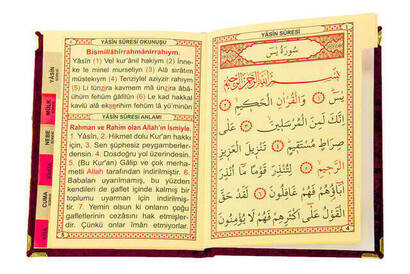 YÂSÎN SÛRESİ OKUNUŞU
Bismillâhirrahmânirrahıym.
Yâsîn (1) Vel kur'ânil hakiym (2) İnne-
ke le minel murseliyn. (3) Alâ sırâtım
müstekıym (4) Tenziylel aziyzir rahiym
(5) Li tünzira kavmem mâ ünzira âbâ-
ühüm fehüm ğâfilûn (6) Le kad hakkal
kavlü alâ ekserihim fehüm lâ yü'minûn
YÂSÎN SÛRESİ ANLAMI
Rahman ve Rahim olan Allah'ın İsmiyle.
1. Yâsîn, 2. Hikmet dolu Kur'an hakkı
için, 3. Sen şüphesiz peygamberler-
densin. 4. Dosdoğru yol üzerindesin.
5. (Bu Kur'an) Gâlip ve çok merha-
metli Allah tarafından indirilmiştir. 6.
Babaları uyarılmamış, bu yüzden
kendileri de gaflet içinde kalmış bir
toplumu uyarman için indirilmiş-
tir. 7. Yemin olsun ki onların çoğu
gafletlerinin cezâsını hak etmişler-
dir. Çünkü onlar îmân etmiyorlar.
YÂSÎN
MÜLK
NEBE
CUMA
YÂSÎN SÛRESİ
سُورَةُ يٰسٓ
بِسْمِ اللهِ الرَّحْمٰنِ الرَّحِيمِ
يٰسٓ ﴿١﴾ وَالْقُرْاٰنِ الْحَكِيمِ ﴿٢﴾
اِنَّكَ لَمِنَ الْمُرْسَلِينَ ﴿٣﴾ عَلٰى
صِرَاطٍ مُسْتَقِيمٍ ﴿٤﴾ تَنْزِيلَ الْعَزِيزِ
الرَّحِيمِ ﴿٥﴾ لِتُنْذِرَ قَوْمًا مَٓا اُنْذِرَ
اٰبَٓاؤُ۬هُمْ فَهُمْ غَافِلُونَ ﴿٦﴾ لَقَدْ حَقَّ
الْقَوْلُ عَلٰٓى اَكْثَرِهِمْ فَهُمْ لَا يُؤْمِنُونَ